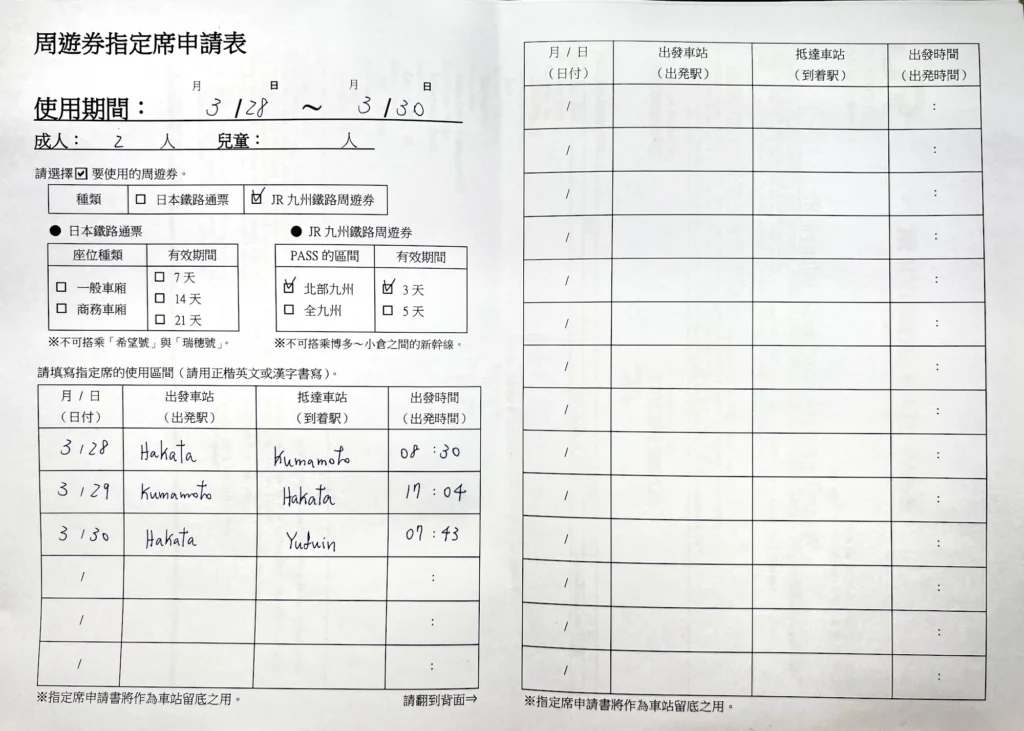 周遊券指定席申請表
月 日 月 日
使用期間： 3 / 28 ～ 3 / 30
成人： 2 人 兒童： 人
請選擇☑要使用的周遊券。
種類 □ 日本鐵路通票 ☑ JR 九州鐵路周遊券
● 日本鐵路通票
座位種類 有效期間
□ 一般車廂 □ 7 天
□ 商務車廂 □ 14 天
□ 21 天
※不可搭乘「希望號」與「瑞穗號」。
● JR 九州鐵路周遊券
PASS 的區間 有效期間
☑ 北部九州 ☑ 3 天
□ 全九州 □ 5 天
※不可搭乘博多～小倉之間的新幹線。
請填寫指定席的使用區間（請用正楷英文或漢字書寫）。
月 / 日 出發車站 抵達車站 出發時間
（日付） （出発駅） （到着駅） （出発時間）
3 / 28 Hakata Kumamoto 08 : 30
3 / 29 Kumamoto Hakata 17 : 04
3 / 30 Hakata Yufuin 07 : 43
/ :
/ :
/ :
※指定席申請書將作為車站留底之用。 請翻到背面⇒
月 / 日 出發車站 抵達車站 出發時間
（日付） （出発駅） （到着駅） （出発時間）
/ :
/ :
/ :
/ :
/ :
/ :
/ :
/ :
/ :
/ :
/ :
/ :
/ :
/ :
※指定席申請書將作為車站留底之用。